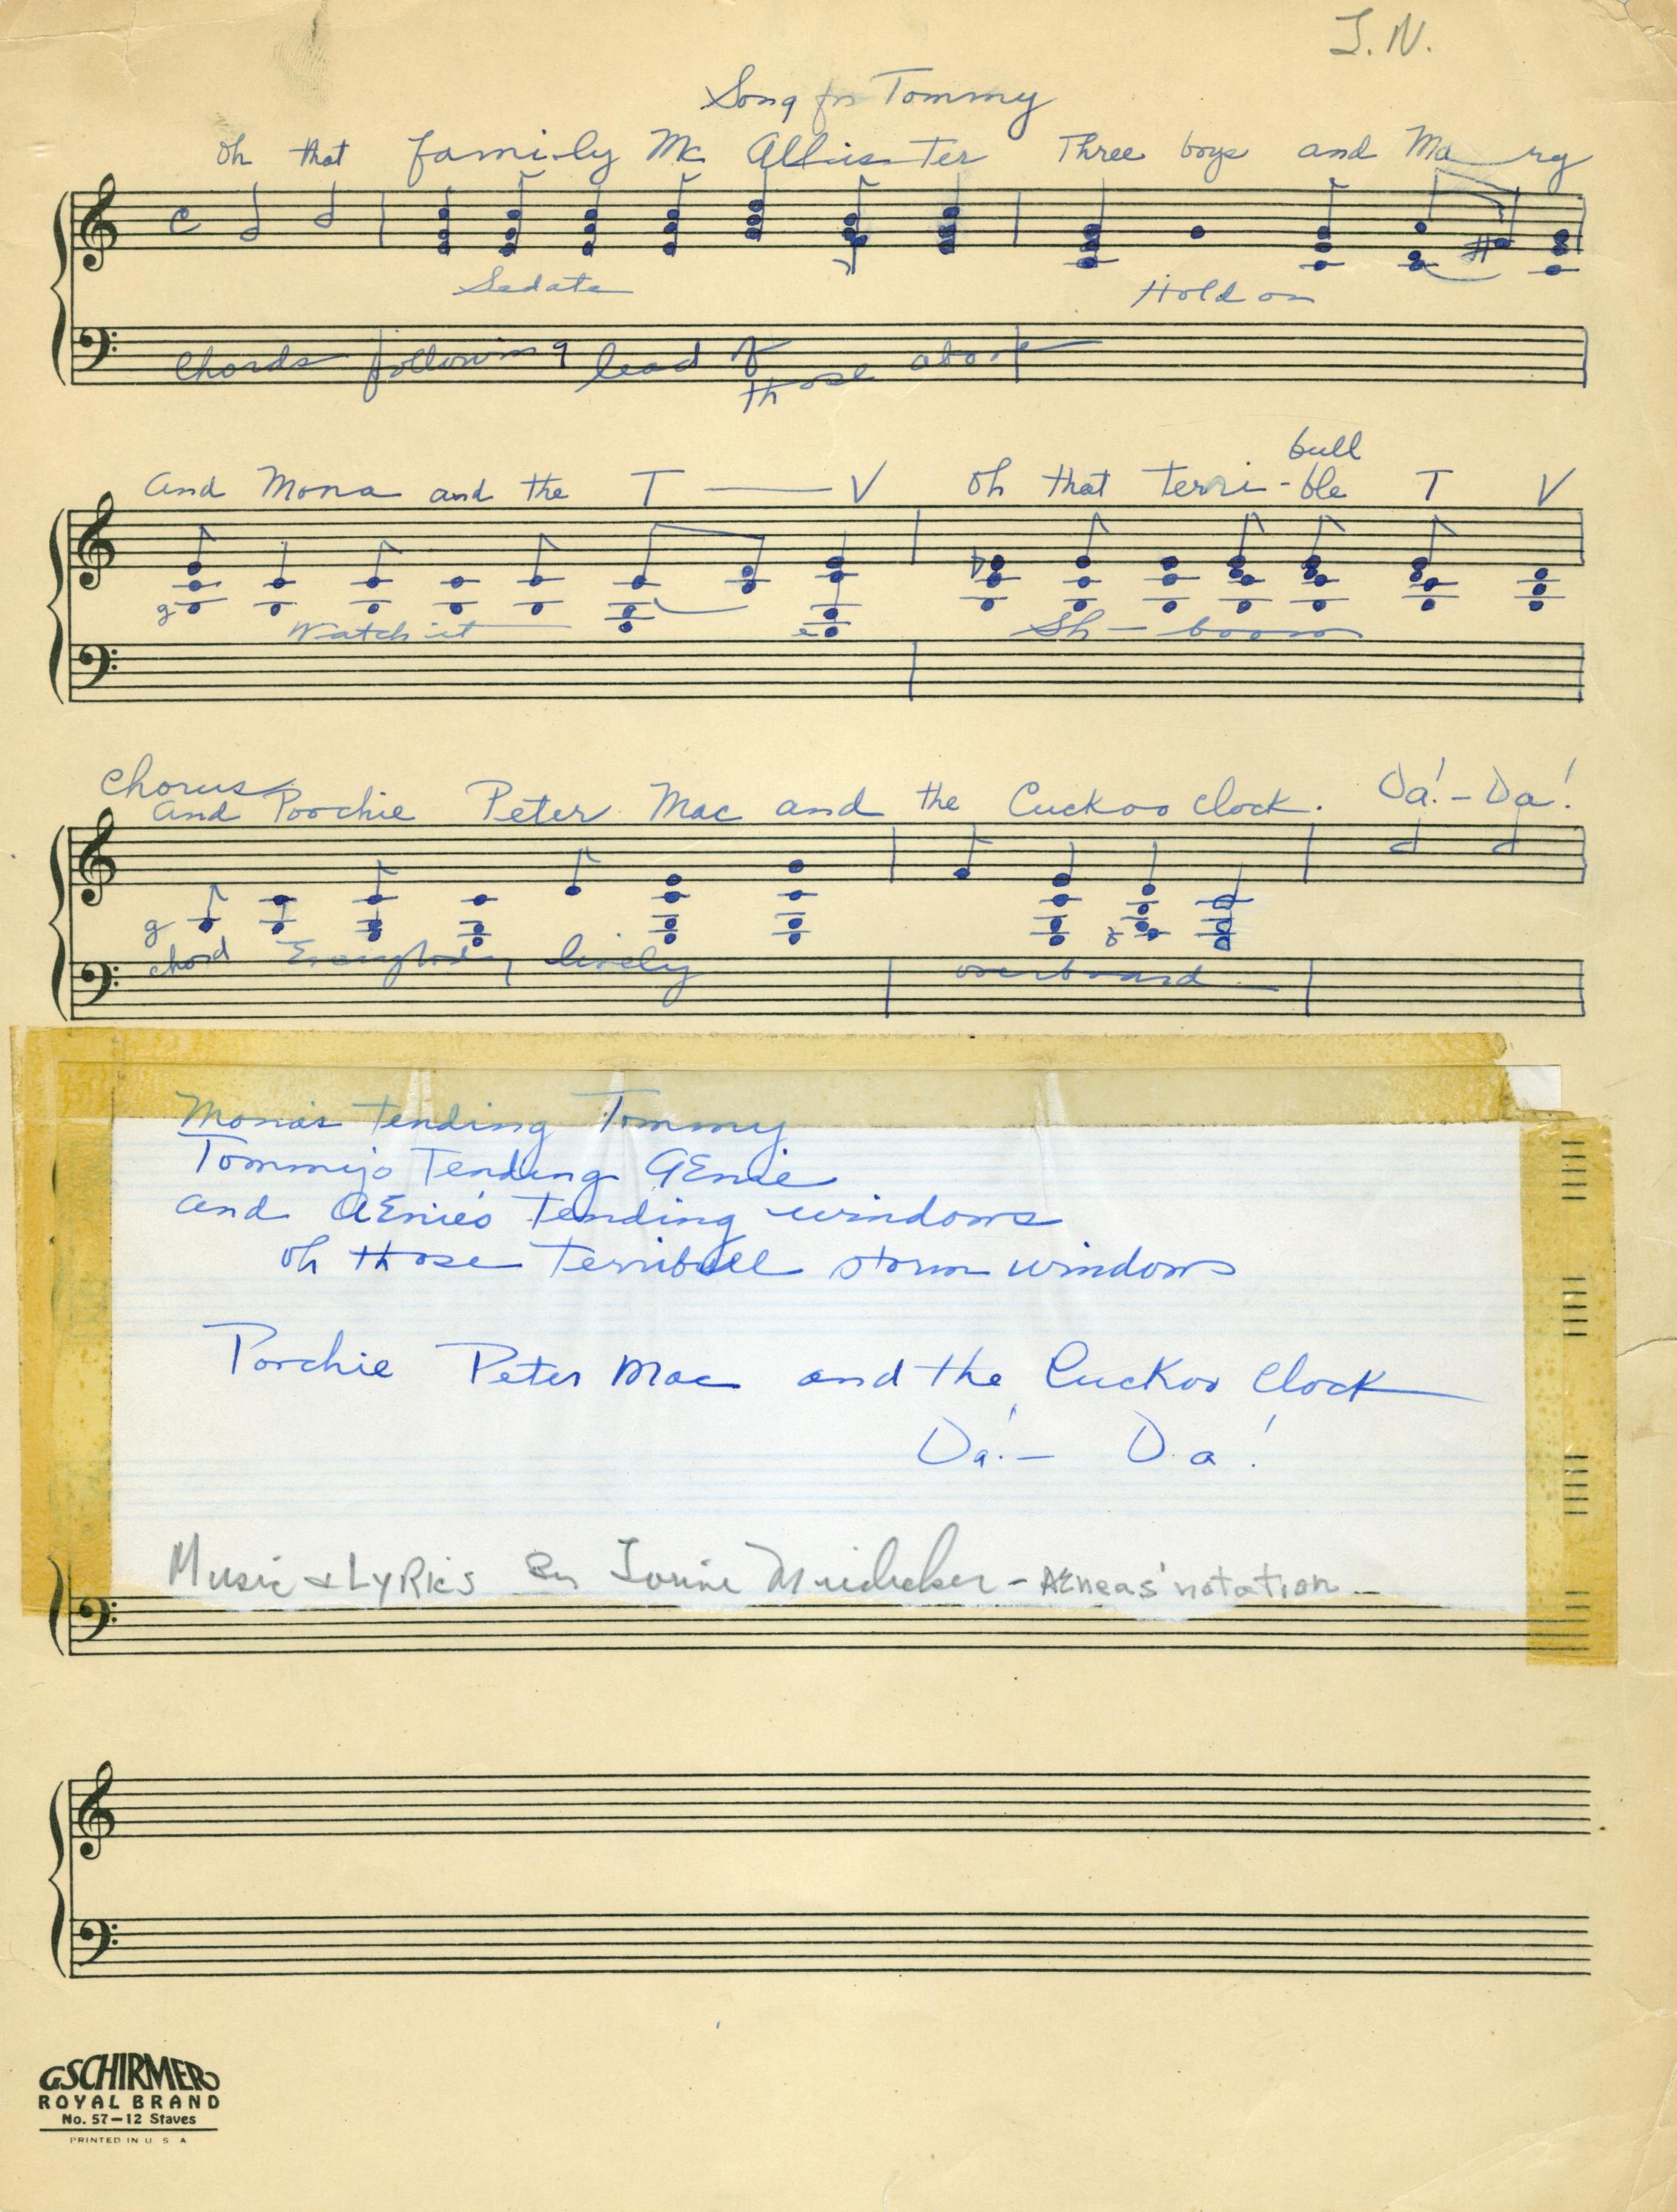 L. N.
Song for Tommy
Oh that fami-ly Mc Allis-ter Three boys and Ma ry
C
Sedate Hold on
Chords following lead of those above
bull
and Mona and the T — V Oh that terri-ble T V
g Watch it e Sh-boom
Chorus
and Poochie Peter Mac and the Cuckoo clock. Da!-Da!
g
chord Everybody lively overboard
Mona's tending Tommy
Tommy's Tending AEnie
and AEnie's Tending windows
oh those terribull storm windows
Porchie Peter Mac and the Cuckoo Clock
Da!- Da!
Music & LyRics By Lorine Niedecker - AEneas' notation -
G SCHIRMER
ROYAL BRAND
No. 57—12 Staves
PRINTED IN U S A